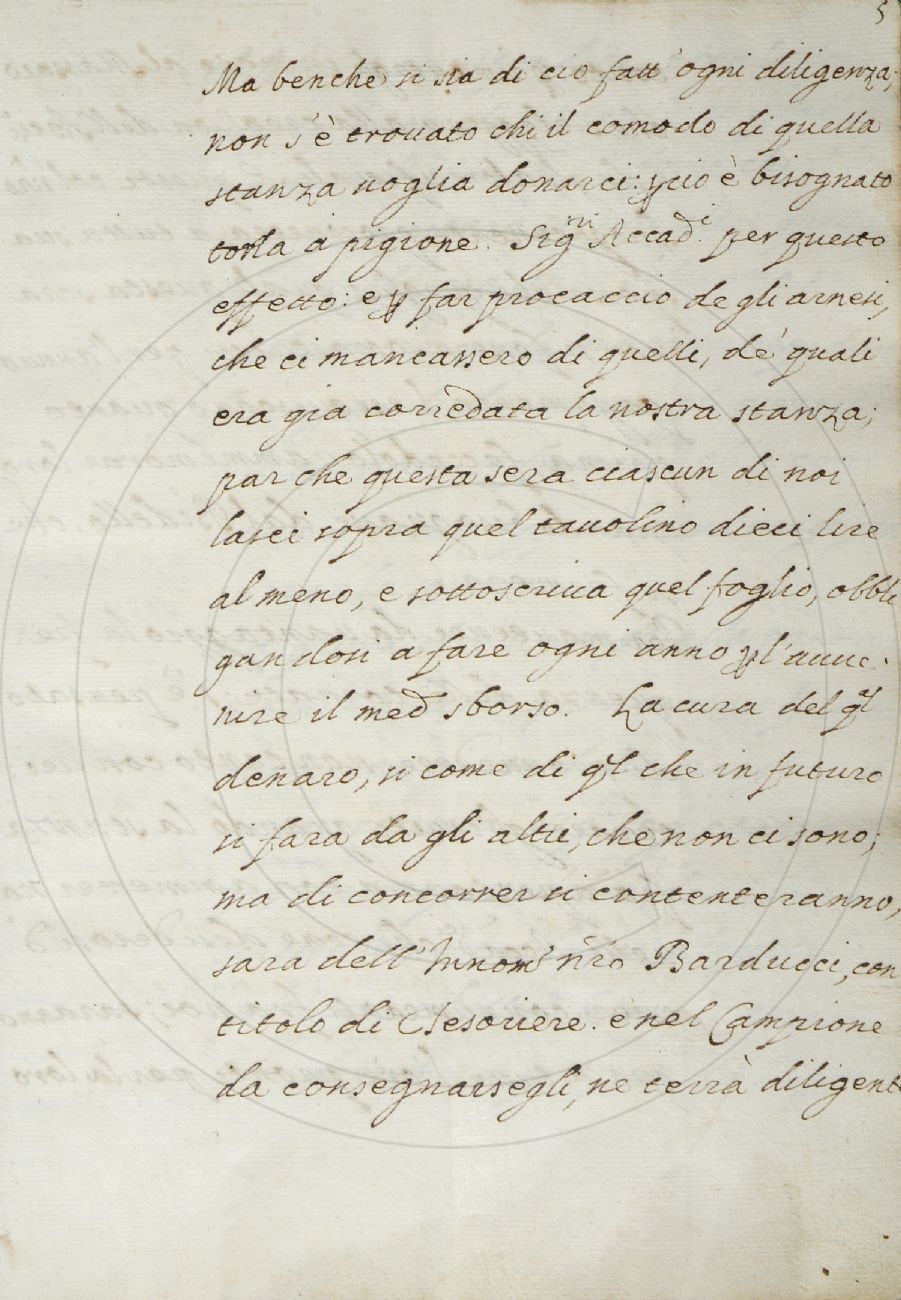 5
Ma benche si sia di cio fatt' ogni diligenza;
non s'è trouato chi il comodo di quella
stanza uoglia donarci: ꝑcio è bisognato
torla à pigione. Sig.ri Accad.i per questo
effetto: e ꝑ far procaccio de gli arnesi,
che ci mancassero di quelli, de' quali
era gia corredata la nostra stanza;
par che questa sera ciascun di noi
lasci sopra quel tauolino dieci lire
al meno, e sottoscriua quel foglio, obbli
gandosi a fare ogni anno ꝑ l'auue-
nire il med sborso. La cura del ql
denaro, si come di ql che in futuro
si fara da gli altri, che non ci sono;
ma di concorrer si contenteranno,
sara dell' Innom.o nro Barducci, con
titolo di Tesoriere. e nel Campione
da consegnarsegli, ne terrà diligente